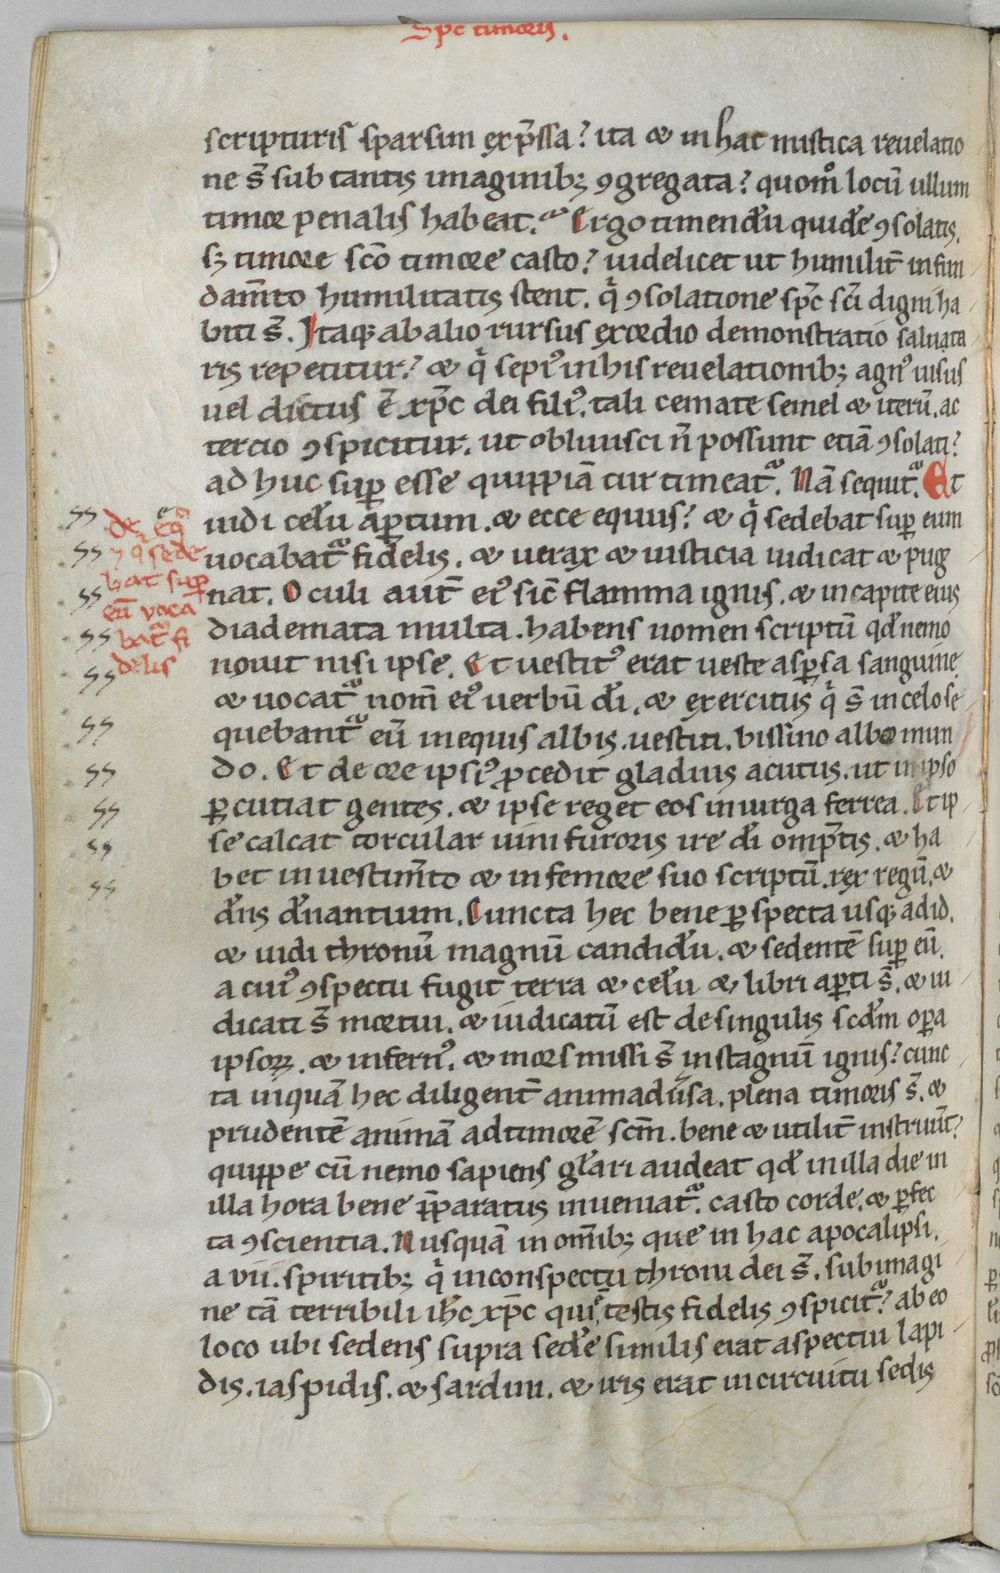 Spc timoris.
scripturis sparsim exp̄ssa? ita & in hac mistica reuelatio
ne s̄ sub tantis imaginibꝫ ꝯgregata? quom̊ locū ullum
timor penalis habeat. Ergo timendū quidē ꝯsolatis.
sꝫ timore sc̄o timore casto? uidelicet ut humilit̄ in fun
dam̄to humilitatis stent. q̄ ꝯsolatione sp̄c sc̄i digni ha
biti s̄. Itaqꝫ ab alio rursus exordio demonstratio saluta
ris repetitur? & q̄ sepi᷒ in his reuelationibꝫ agn᷒ uisus
uel dictus ē xp̄c dei fili᷒. tali cemate semel & iterū. ac
tercio ꝯspicitur. ut obliuisci n̄ possunt etiā ꝯsolati?
ad huc suꝑ esse quippiā cur timeat᷑. Nā sequit᷑. Et
uidi celū aꝑtum. & ecce equus? & q̄ sedebat suꝑ eum
de eq̊
uocabat᷑ fidelis. & uerax & iusticia iudicat & pug
⁊ q̇ sede
nat. Oculi aut̄ ei᷒ sic̄ flamma ignis. & in capite eius
bat suꝑ
eū uoca
diademata multa. habens nomen scriptū qd̄ nemo
bat᷑ fi
nouit nisi ipse. Et uestit᷒ erat ueste asꝑsa sanguine
delis
& uocat᷑ nom̄ ei᷒ uerbū dī. & exercitus q̄ s̄ in celo se
quebant᷑ eū in equis albis. uestiti. bissino albo mun
do. Et de ore ipsi᷒ ꝓcedit gladius acutus. ut in ipso
ꝑcutiat gentes. & ipse reget eos in uirga ferrea. Et ip
se calcat torcular uini furoris ire dī omp̄tis. & ha
bet in uestim̄to & in femore suo scriptū. rex regū. &
dn̄s dn̄antium. Cuncta hec bene ꝑspecta usqꝫ ad id.
& uidi thronū magnū candidū. & sedentē suꝑ eū.
a cui᷒ ꝯspectu fugit terra & celū & libri aꝑti s̄. & iu
dicati s̄ mortui. & iudicatū est de singulis scd̄m oꝑa
ipsoꝝ. & infern᷒. & mors missi s̄ in stagnū ignis? cunc
ta inquā hec diligent̄ animaduersa. plena timoris s̄. &
prudentē animā ad timorē sc̄m. bene & utilit̄ instruūt?
quippe cū nemo sapiens gl̄ari audeat qd̄ in illa die in
illa hora bene p̄paratus inueniat᷑. casto corde. & ꝑfec
ta ꝯscientia. Nusquā in om̄ibꝫ que in hac apocalipsi.
a vii. spiritibꝫ q̄ in conspectu throni dei s̄. sub imagi
ne tā terribili ih̄c xp̄c qui ē testis fidelis ꝯspicit᷑? ab eo
loco ubi sedens supra sedē similis erat aspectui lapi
dis. iaspidis. & sardini. & iris erat in circuitu sedis